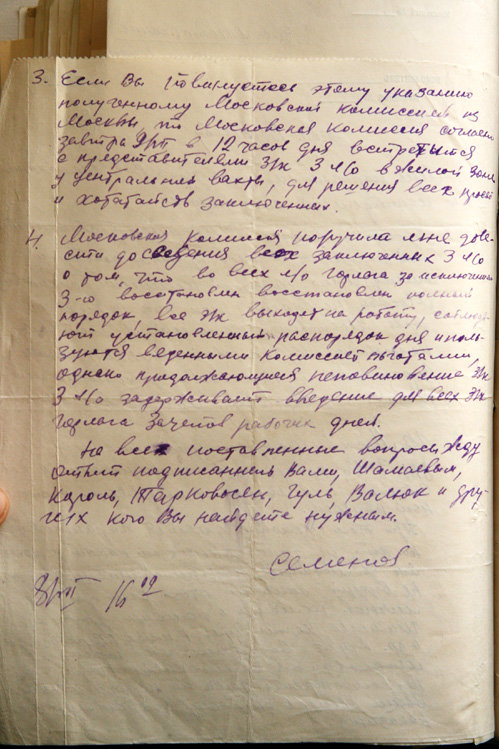 3. Если Вы повинуетесь этому указанию
полученному Московской комиссией из
Москвы то Московская комиссия согласна
завтра 9/VII в 12 часов дня встретиться
с представителями з/к 3 л/о в жилой зоне
у центральной вахты, для решения всех
и хотатайств заключенных.
4. Московская комиссия поручила мне дове-
сти до сведения всех заключенных 3 л/о
о том, что во всех л/о горлага за исключением
3-го восстановлен восстановлен полный
порядок, все з/к выходят на работу, соблюда-
ют установленный распорядок дня и поль-
зуются веденными комиссией льготами,
однако продолжающиеся неповиновение з/к
3 л/о задерживает введение для всех з/к
горлага зачетов рабочих дней.
На все поставленные вопросы жду
ответ подписанный Вами, Шамаевым,
Король, Тарковосен, Гуль, Валюк и дру-
гих кого Вы найдете нужным.
Семенов
8/VII 16 02